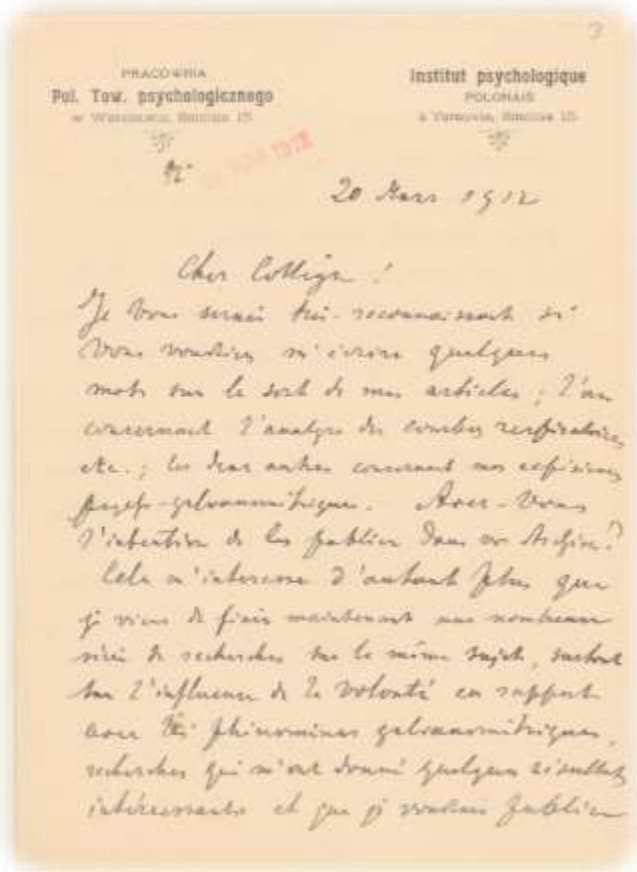 3
PRACOWNIA
Pol. Tow. psychologicznego
w Warszawie,
Institut psychologique
POLONAIS
à Varsovie,
No
MAR 1912
20 Mars 1912
Cher Collègue !
Je vous serais très-reconnaissant si
vous voudriez m'écrire quelques
mots sur le sort de mes articles ; l'un
concernant l'analyse des courbes respiratoires
etc. ; les deux autres concernant mes expériences
psycho-galvanométriques. Avez-vous
l'intention de les publier dans vos Archives?
Cela m'interesse d'autant plus que
je viens de finir maintenant une nombreuse
série de recherches sur le même sujet, surtout
sur l'influence de la volonté en rapport
avec les phénomènes galvanométriques,
recherches qui m'ont donné quelques résultats
intéressants et que je voudrais publier